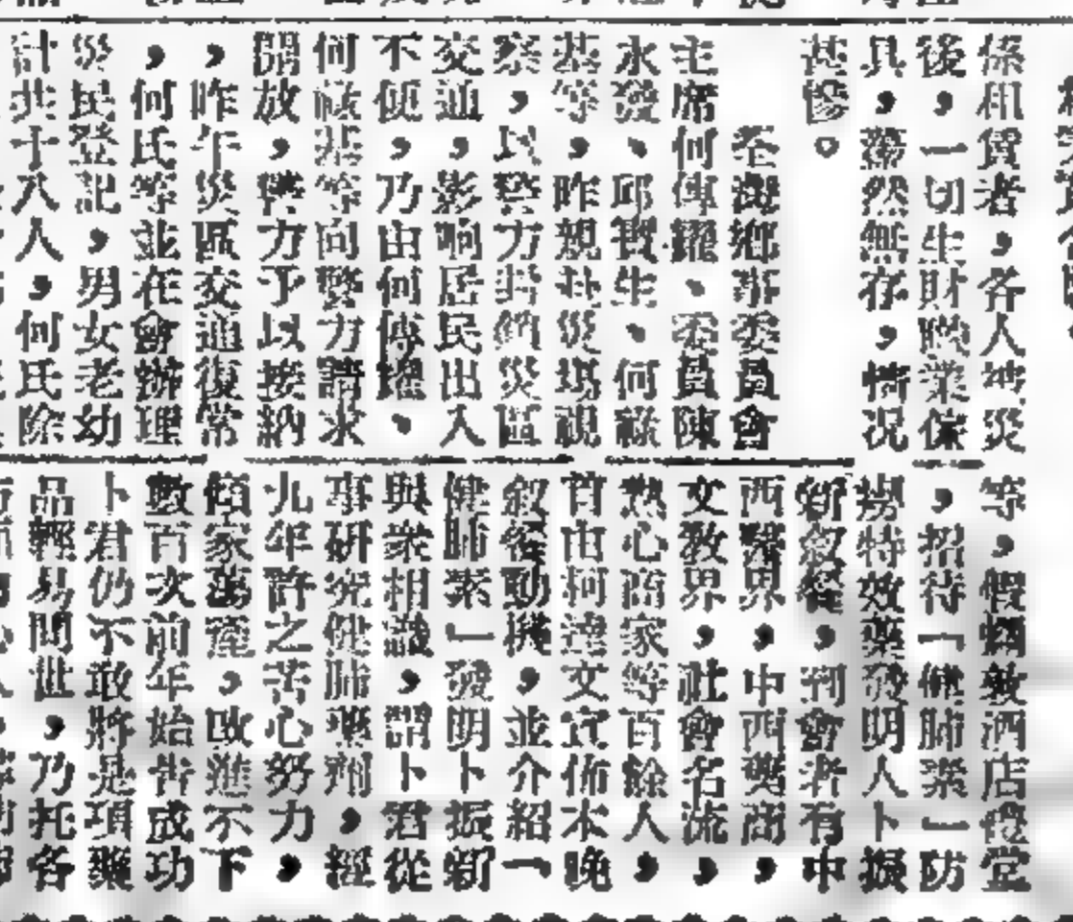 係相賃者，各人被災
後，一切生財職業傢
具，蕩然無存，情况
甚慘。
荃灣鄉事委員會
主席何傳耀、委員陳
永發、邱寶生、何祿
基等，昨親赴災場視
察，以警力封鎖災區
交通，影响居民出入
不便，乃由何傳耀、
何祿基等向警方請求
開放，警方予以接納
，昨午災區交通復常
，何氏等並在會辦理
災民登記，男女老幼
計共十八人，何氏除
等，假娥敦酒店禮堂
，招待「健肺素」防
癆特效藥發明人卜振
新敘餐，到會者有中
西醫界，中西藥商，
文教界，社會名流，
熱心商家等百餘人，
首由柯達文宣佈本晚
敘餐動機，並介紹「
健肺素」發明卜振新
與衆相識，謂卜君從
事研究健肺藥劑，經
九年許之苦心努力，
傾家蕩產，改進不下
數百次前年始告成功
卜君仍不敢將是項藥
品輕易問世，乃托各